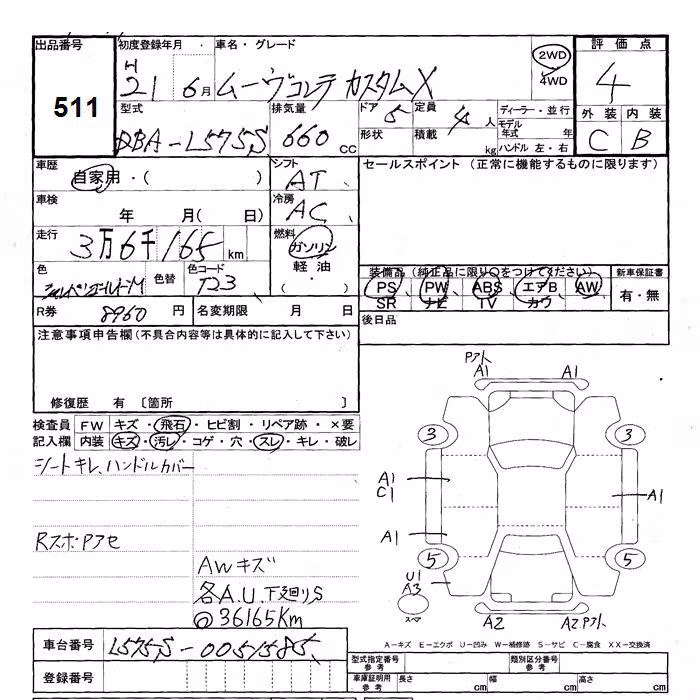 出品番号 511
初度登録年月 H 21 6月
車名・グレード ムーヴコンテ カスタムX
2WD
4WD
評価点 4
外装 内装
C B
型式 DBA-L575S
排気量 660 CC
ドア 5
定員 4 人
形状
積載 kg
ディーラー・並行
モデル年式 年
ハンドル 左・右
車歴 自家用・( )
シフト AT
セールスポイント (正常に機能するものに限ります)
車検 年 月( 日)
冷房 AC
走行 3万6千165 km
燃料 ガソリン
軽油
・( )
色
色替
色コード T23
装備品 (純正品に限り○をつけてください)
PS PW ABS エアB AW
SR ナビ TV カワ
新車保証書
有・無
R券 8960 円
名変期限 月 日
後日品
注意事項申告欄(不具合内容等は具体的に記入して下さい)
修復歴 有 〔箇所 〕
検査員 FW キズ・飛石・ヒビ割・リペア跡・×要
記入欄 内装 キズ・汚レ・コゲ・穴・スレ・キレ・破レ
シートキレ、ハンドルカバー
Rスポ・Pアセ
AWキズ
各A.U.下廻りS
@36165Km
Pアト
A1 A1
3 3
A1
C1
A1
A1
5 5
U1
A3
スペア
A2 A2Pアト
A-キズ E-エクボ U-凹み W-補修跡 S-サビ C-腐食 XX-交換済
車台番号 L575S-0051585
登録番号
型式指定番号 参考
類別区分番号 参考
車庫証明用 参考 長さ cm 幅 cm 高さ cm